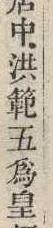 居中洪範五爲皇